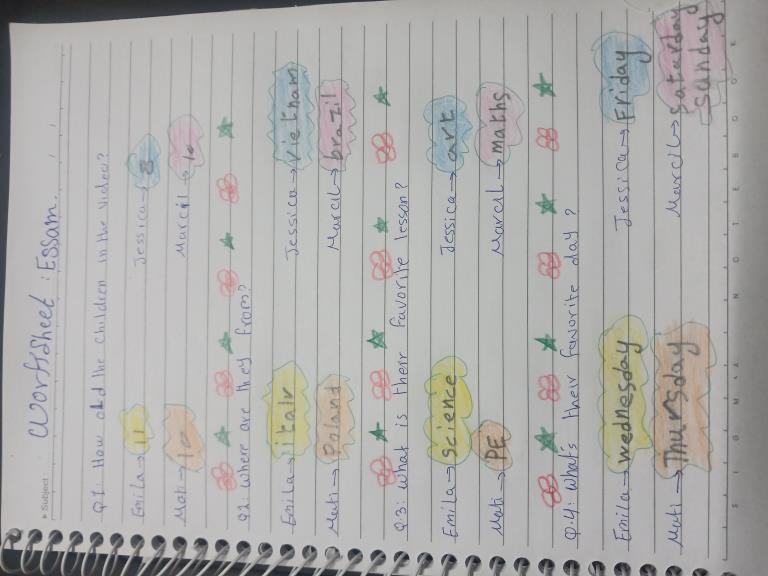 Subject
Worksheet : Essam.
Q1: How old the children in the video?
Emila→ 11 Jessica→ 8
Mati→ 10 Marcil→ 10
Q2: Where are they from?
Emila→ italy Jessica→ vietnam
Mati→ Poland Marcil→ brazil
Q.3: What is their favorite lesson?
Emila→ science Jessica→ art
Mati→ PE Marcil→ maths
Q.4: whats their favorite day?
Emila→ wednesday Jessica→ Friday
Mati→ Thursday Marcil→ saturday
sunday
SIGMA NOTEBOOK